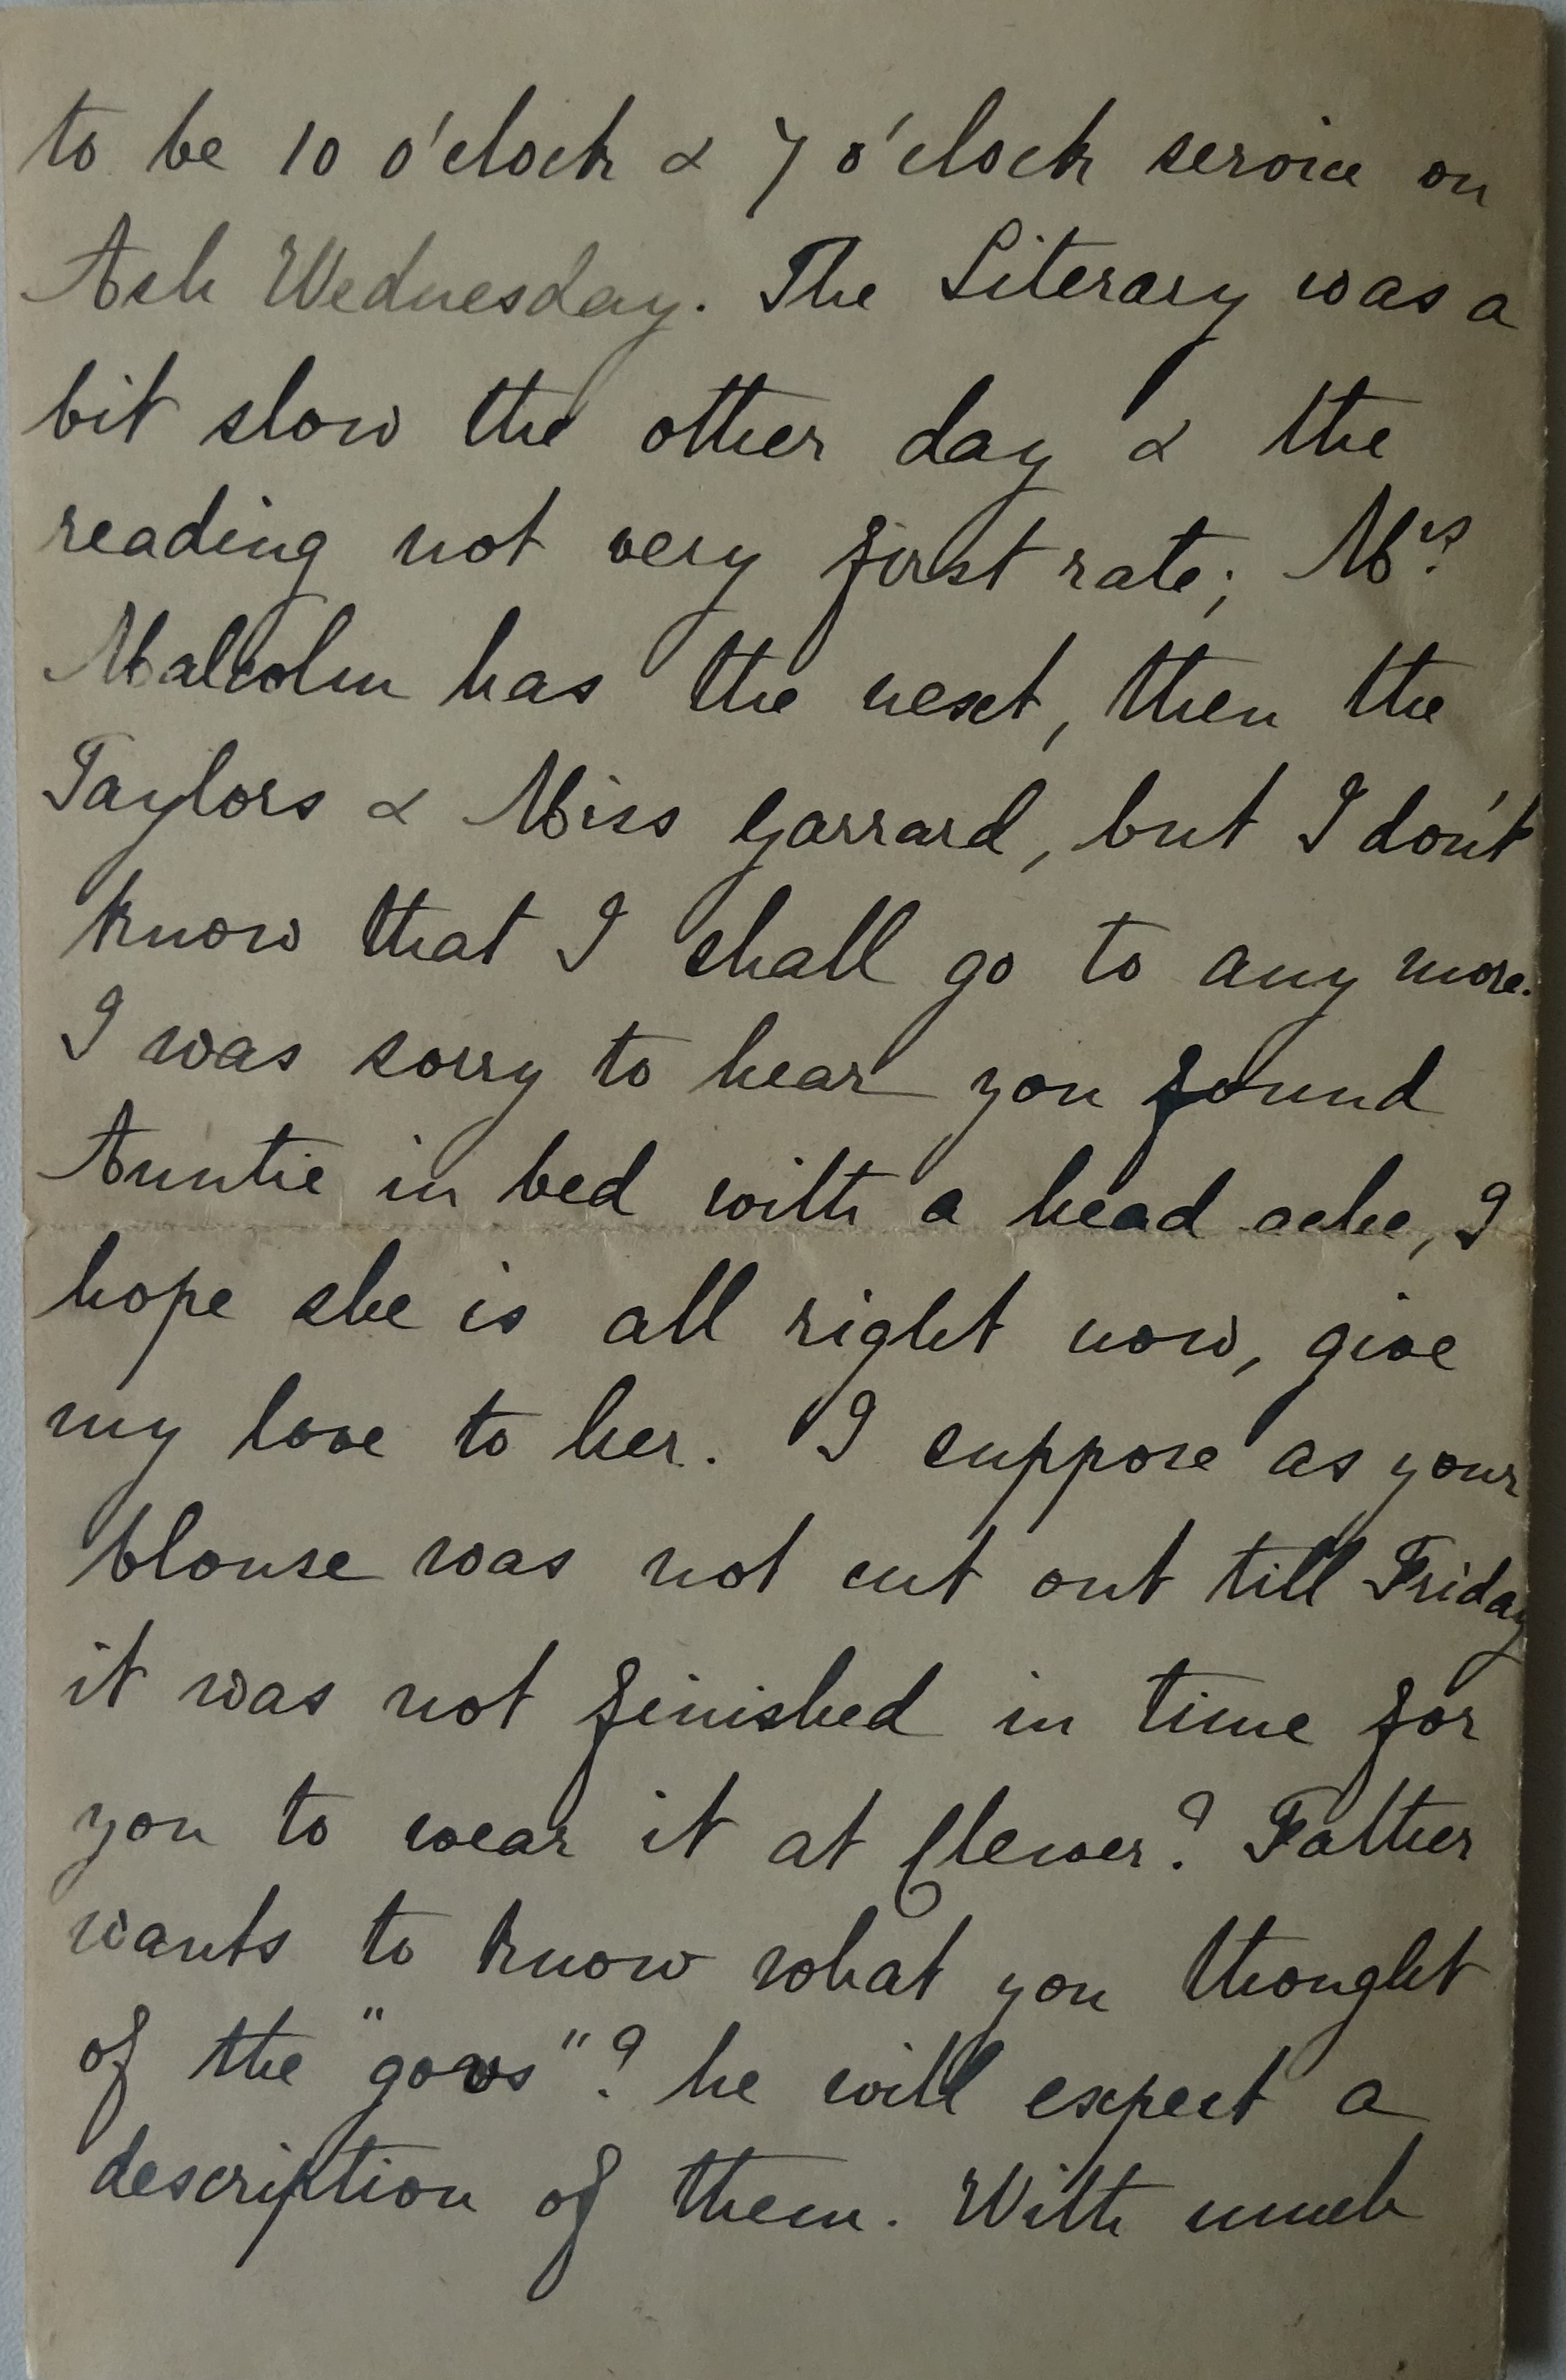 to be 10 o'clock & 7 o'clock service on
Ash Wednesday. The Literary was a
bit slow the other day & the
reading not very first rate; Mrs.
Malcolm has the next, then the
Taylors & Miss Garrard, but I don't
know that I shall go to any more.
I was sorry to hear you found
Auntie in bed with a head ache, I
hope she is all right now, give
my love to her. I suppose as your
blouse was not cut out till Friday
it was not finished in time for
you to wear it at Clewer? Father
wants to know what you thought
of the "govs"? he will expect a
description of them. With much